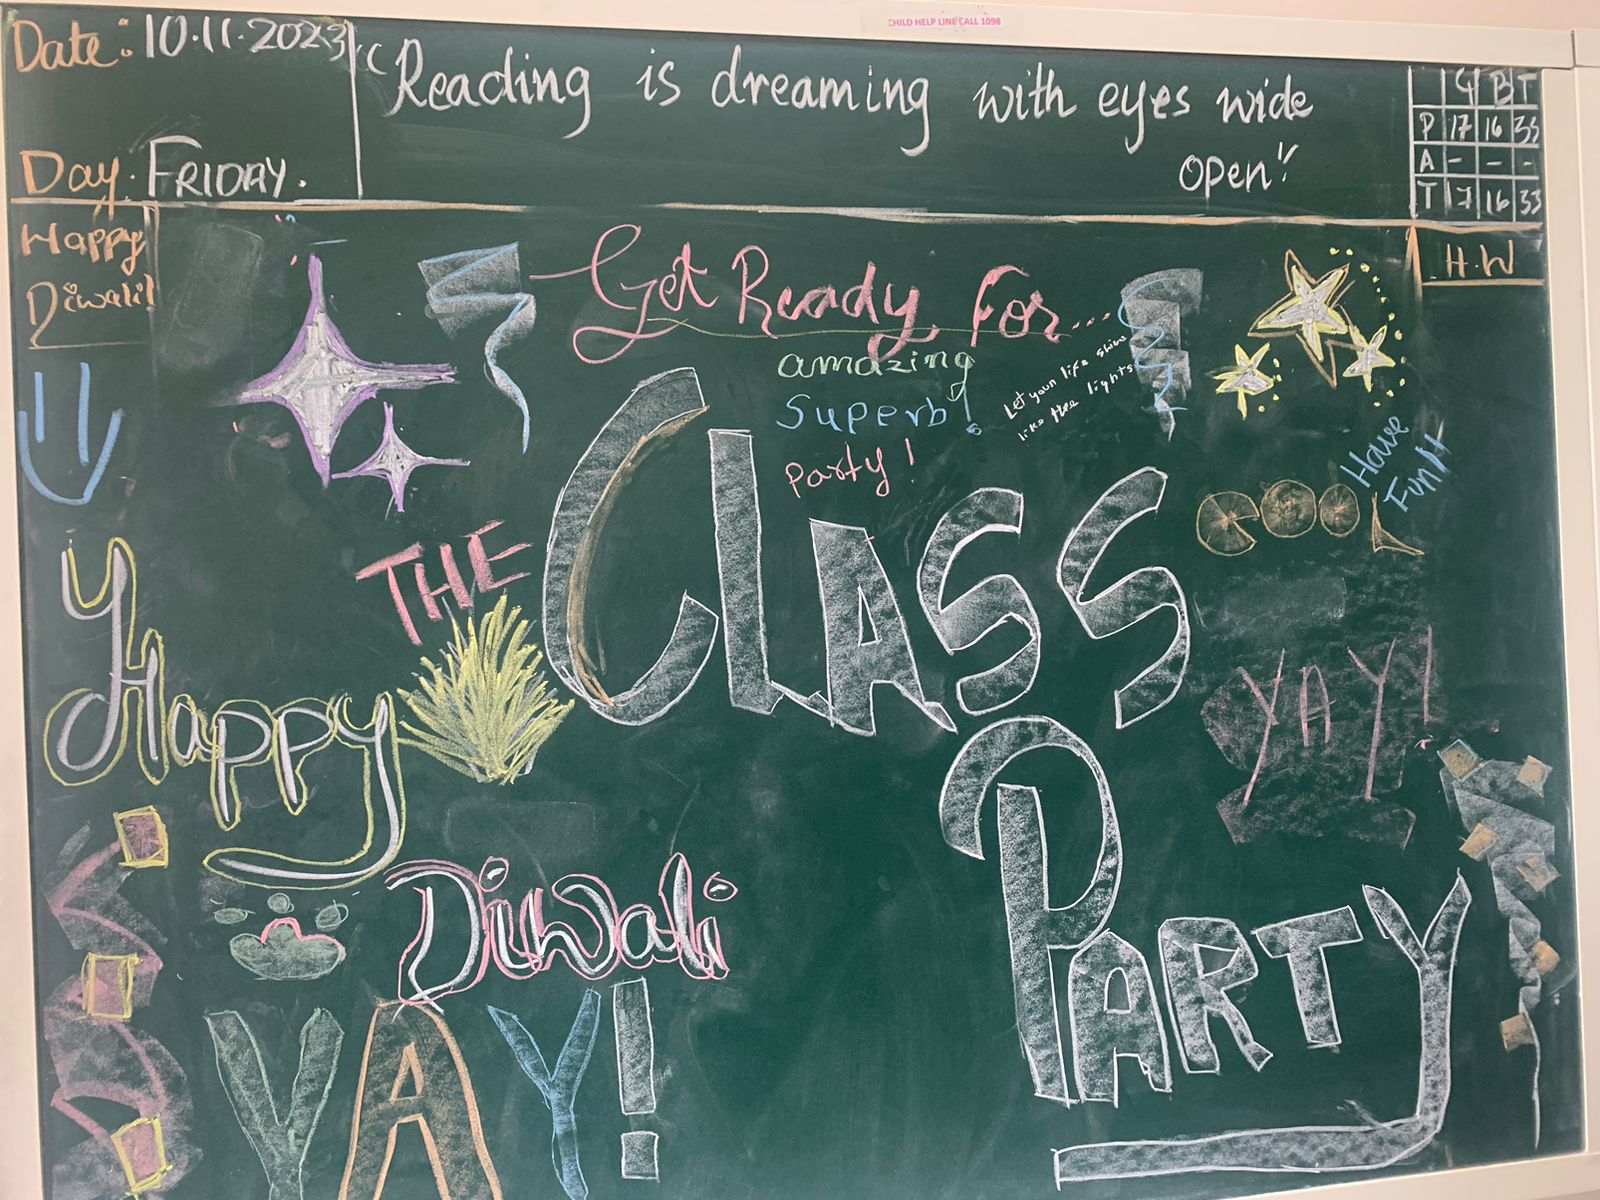 CHILD HELP LINE CALL 1098
Date: 10.11.2023
"Reading is dreaming with eyes wide
open!"
Day. FRIDAY.
G B T
P 17 16 33
A - - -
T 17 16 33
Happy
Diwali!
H.W
Get Ready For...
amazing
Superb!
Party!
Let your life shine
like thee lights
Have
Fun!!
COOL
THE
CLASS
PARTY
YAY!
Happy
Diwali
YAY!